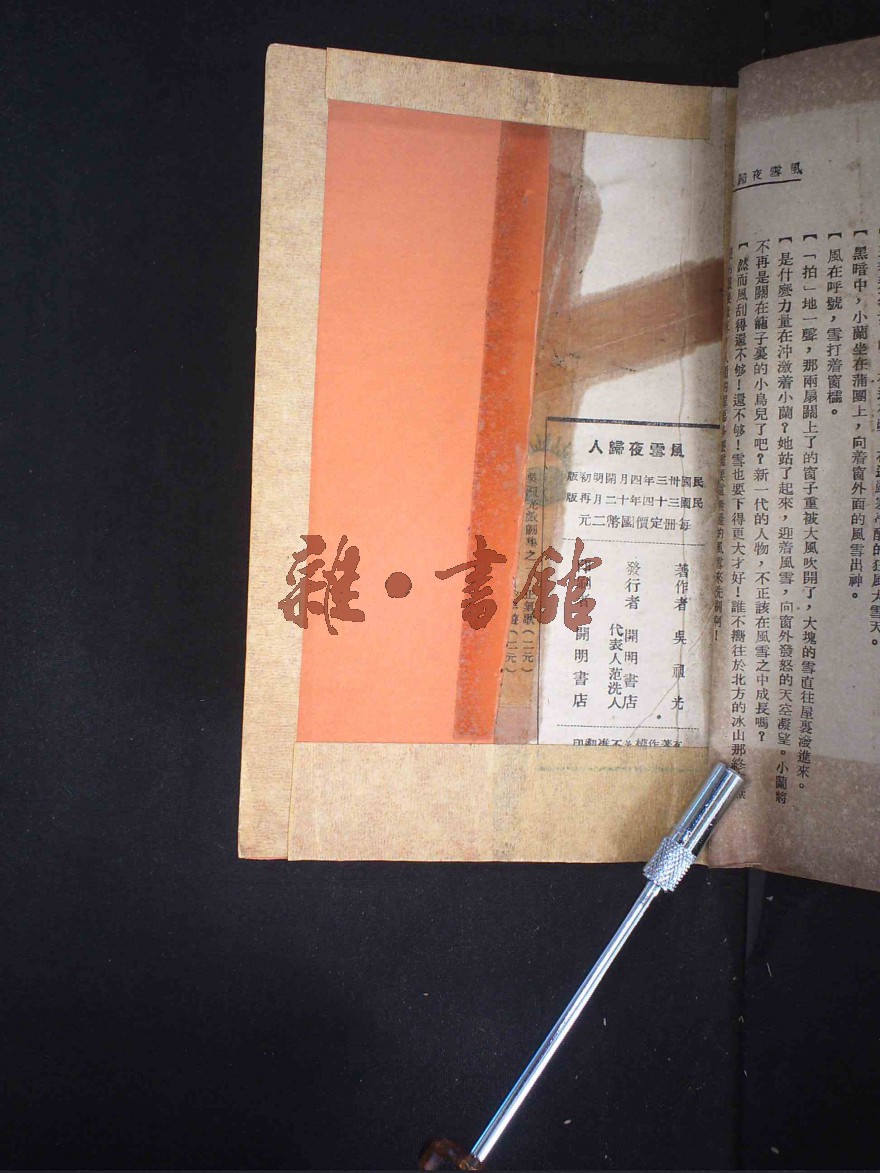 風雪夜歸
黑暗中，小蘭坐在蒲團上，向着窗外面的風雪出神。
【風在呼號，雪打着窗櫺。
【「拍」地一聲，那兩扇關上了的窗子重被大風吹開了，大塊的雪直往屋裏潑進來。
【是什麼力量在沖激着小蘭？她站了起來，迎着風雪，向窗外發怒的天空凝望。小蘭將
不再是關在籠子裏的小鳥兒了吧？新一代的人物，不正該在風雪之中成長嗎？
【然而風刮得還不够！還不够！雪也要下得更大才好！誰不嚮往於北方的冰山那
的風雪來洗刷啊！
風雪夜歸人
民國卅三年四月開明初版
民國三十四年十二月再版
每冊定價國幣二元
著作者 吳祖光
發行者 開明書店
代表人范洗人
印刷者 開明書店
有著作權不准翻印
（二元）
（二元）
雜·書館